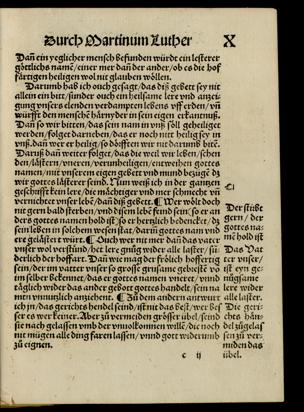 Durch Martinum Luther X
Dañ ein yeglicher mensch befunden würde ein lesterer
göttlichs namẽ/ einer mer dañ der ander/ ob es die hof
färtigen heiligen wol nit glauben wöllen.
Darumb hab ich ouch gesagt/ das diß gebett sey nit
allein ein bitt/ sunder ouch ein heilsame lere vnd anzei
gung vnsers elenden verdampten lebens vff erden/ vñ
würfft den menschẽ härnyder in sein eigen erkantnuß.
Dañ so wir bitten/ das sein nam in vnß söll geheiliget
werden/ folget darneben/ das er noch nitt heilig sey in
vnß. dañ wer er heilig/ so dörfften wir nit darumb bitẽ.
Daruß dañ weiter folget/ das die weil wir leben/ schen
den/ lästern/ vneren/ vnheiligen/ gottes
namen/ mit vnserem eigen gebett vnd mund bezügẽ dz
wir gottes lästerer seind. Nun weiß ich in der gantzen
geschrifft kein lere/ die mächtiger vnd mer schmech vñ
vernichtet vnser lebẽ/ dañ diß gebett. ¶ Wer wölt doch
nit gern bald sterben/ vnd disem lebẽ feind sein/ so er an
ders gottes namen hold ist/ so er hertlich bedencket/ dz
sein leben in solchem wesen stat/ darin gottes nam vnd
ere gelästert würt. ¶ Ouch wer nit mer dañ das vater
vnser wol verstünd/ het lere gnůg wider alle laster/ sun
derlich der hoffart. Dañ wie mag der frölich hoffertig
sein/ der im vatter vnser so grosse grüsame gebrestẽ võ
im selber bekennet/ das er gottes namen vneret/ vnnd
täglich wider das ander gebot gottes handelt/ sein na
men vnnützlich anziehent. ¶ Zů dem andern antwurt
ich/ in/ das gerichts hendel seind/ ist nit das best/ wer bes
ser es wer keiner. Aber zů vermeiden grösser übel/ seind
sie nach gelassen vmb der vnuolkomnen willẽ/ die noch
nit mügen alle ding faren lassen/ vnnd gott widerumb
zů eignen.
Der stirbt
gern/ der
gottes na-
mẽ hold ist
Das Vat
ter vnser/
ist eyn ge-
nügsame
lere wider
alle laster.
Die geri-
chts hen-
del zůgelas
sen zů ver-
miden das
übel.
c ij